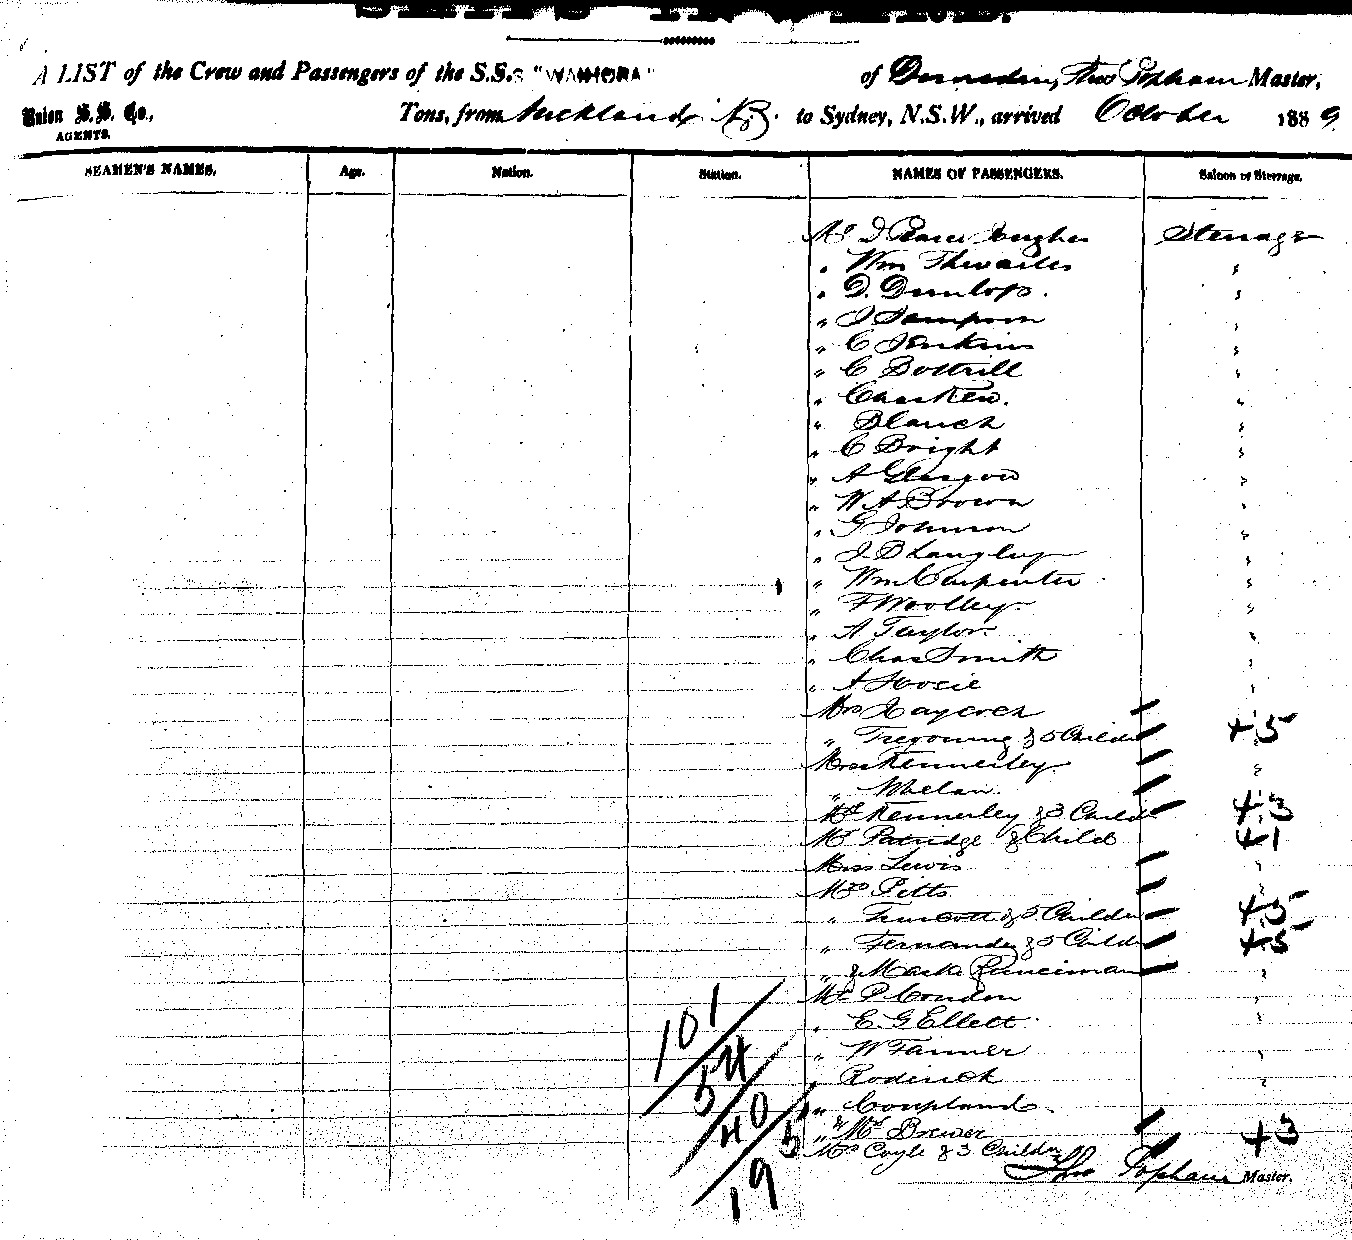 A LIST of the Crew and Passengers of the S.S. "WAIHORA" of Dunedin, Thos Topham Master,
Union S.S. Co., AGENTS. Tons, from Auckland N.Z. to Sydney, N.S.W., arrived October 1889
SEAMEN'S NAMES. Age. Nation. Station. NAMES OF PASSENGERS. Saloon or Steerage.
Mr J Pearce Hughes Steerage
" Wm Thwaites "
" D. Dunlop. "
" J Sampson "
" C Jenkins "
" C Bottrill "
" Chas Kew. "
" Blanch "
" C Bright "
" A Glasgow "
" W A Brown "
" G Johnson "
" J B Langley "
" Wm Carpenter "
" F Woolley "
" A Taylor "
" Chas Smith "
" A Hosie "
Mrs Haycock "
" Tregoning & 5 Childn +5
Misses Kennerley "
" Whelan "
Mrs Kennerley & 3 Childn +3
Mr Patridge & Child +1
Miss Lewis "
Mrs Pitts "
" Truscott & 5 Childn +5
" Fernandez & 5 Childn +5
" & Mast Runciman "
Mr P Condon "
" E. G Ellett "
" W Farmer "
" Roderick "
" Coupland
" & Mrs Brewer
Mrs Coyle & 3 Childn +3
101/54/40/5
19
Thos Topham Master.